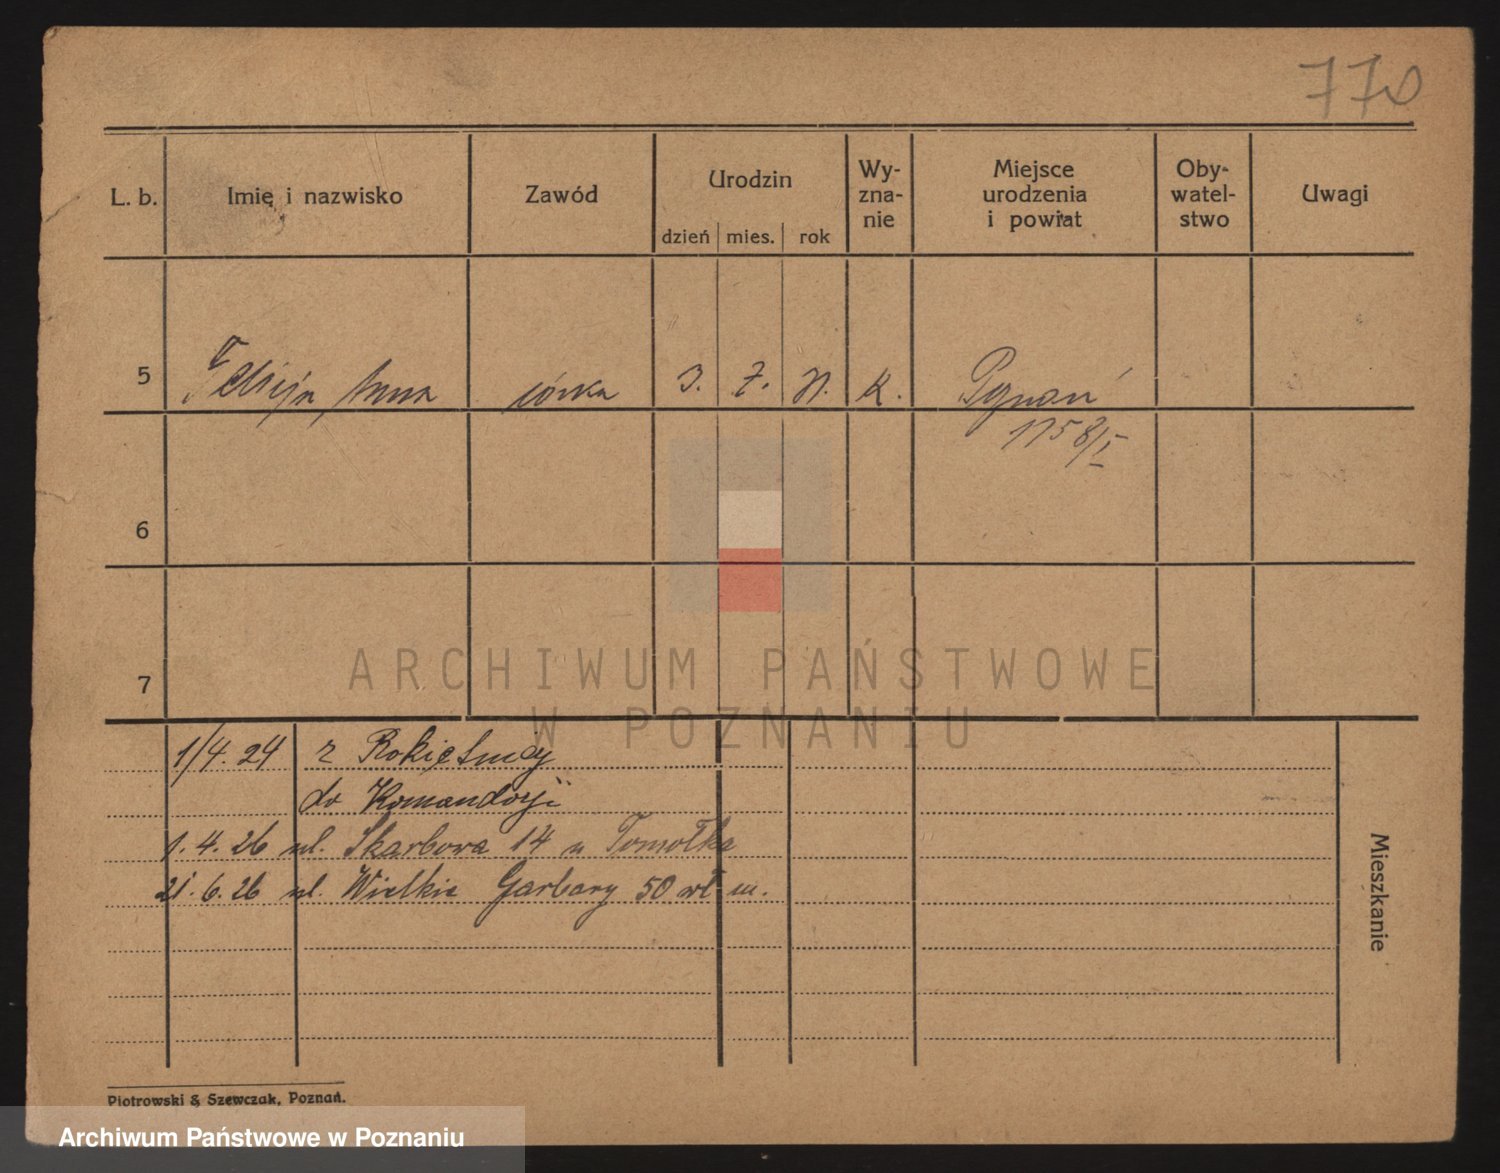 770
L. b. Imię i nazwisko Zawód Urodzin Wy-zna-nie Miejsce urodzenia i powiat Oby-watel-stwo Uwagi
dzień mies. rok
5 Anna córka 3. 7. K. Poznań
1158/I
6
7
ARCHIWUM PAŃSTWOWE
W POZNANIU
1/4. 24 z Rokietnicy
do Komandorji
1. 4. 26 ul. Skarbowa 14 u Tomołka
21. 6. 26 ul. Wielkie Garbary 50 wł. m.
Mieszkanie
Piotrowski & Szewczak, Poznań.
Archiwum Państwowe w Poznaniu